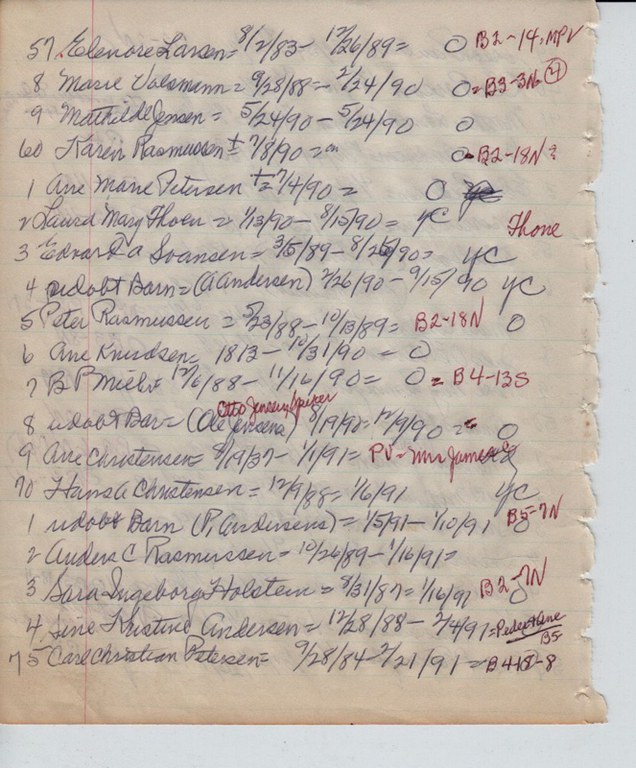 57 Elenore Larsen = 8/2/83 - 12/26/89 = O B2-14, MPV
8 Marie Valsmann = 9/28/88 - 2/24/90 O = B3-3N (4)
9 Mathilde Jensen = 5/24/90 - 5/24/90 O
60 Karen Rasmussen ± 7/8/90 = O - B2-18N
1 Ane Marie Petersen ± = 7/4/90 = O
2 Laura Mary Thoen = 1/13/90 - 8/15/90 = YC Thone
3 Edvard A Svansen = 3/5/89 - 8/25/90 = YC
4 udobt Barn = (A Andersen) 7/26/90 - 9/15/90 YC
5 Peter Rasmussen = 5/23/88 - 10/13/89 = B2-18N O
6 Ane Knudsen = 1813 - 10/31/90 = O
7 B P Miels = 12/6/88 - 11/16/90 = O = B4-13S
Otto Jensen
8 udobt Bar = (Ole Jensens) 8/19/90 - 12/9/90 = O
9 Ane Christensen = 8/19/37 - 1/1/91 = PV - Mrs James
70 Hans A Christensen = 12/9/88 = 1/6/91 YC
1 udobt Barn (P. Andersens) = 1/5/91 - 1/10/91 B5-7N
2 Anders C Rasmussen = 10/26/89 - 1/16/91 =
3 Sara Ingeborg Holstein = 8/31/87 = 1/16/91 B2-7N O
4 Sine Kristine Andersen = 12/28/88 - 2/4/91 = Peder + Ane B5
75 Carl Christian Petersen = 9/28/84 - 2/21/91 = B4-18-8